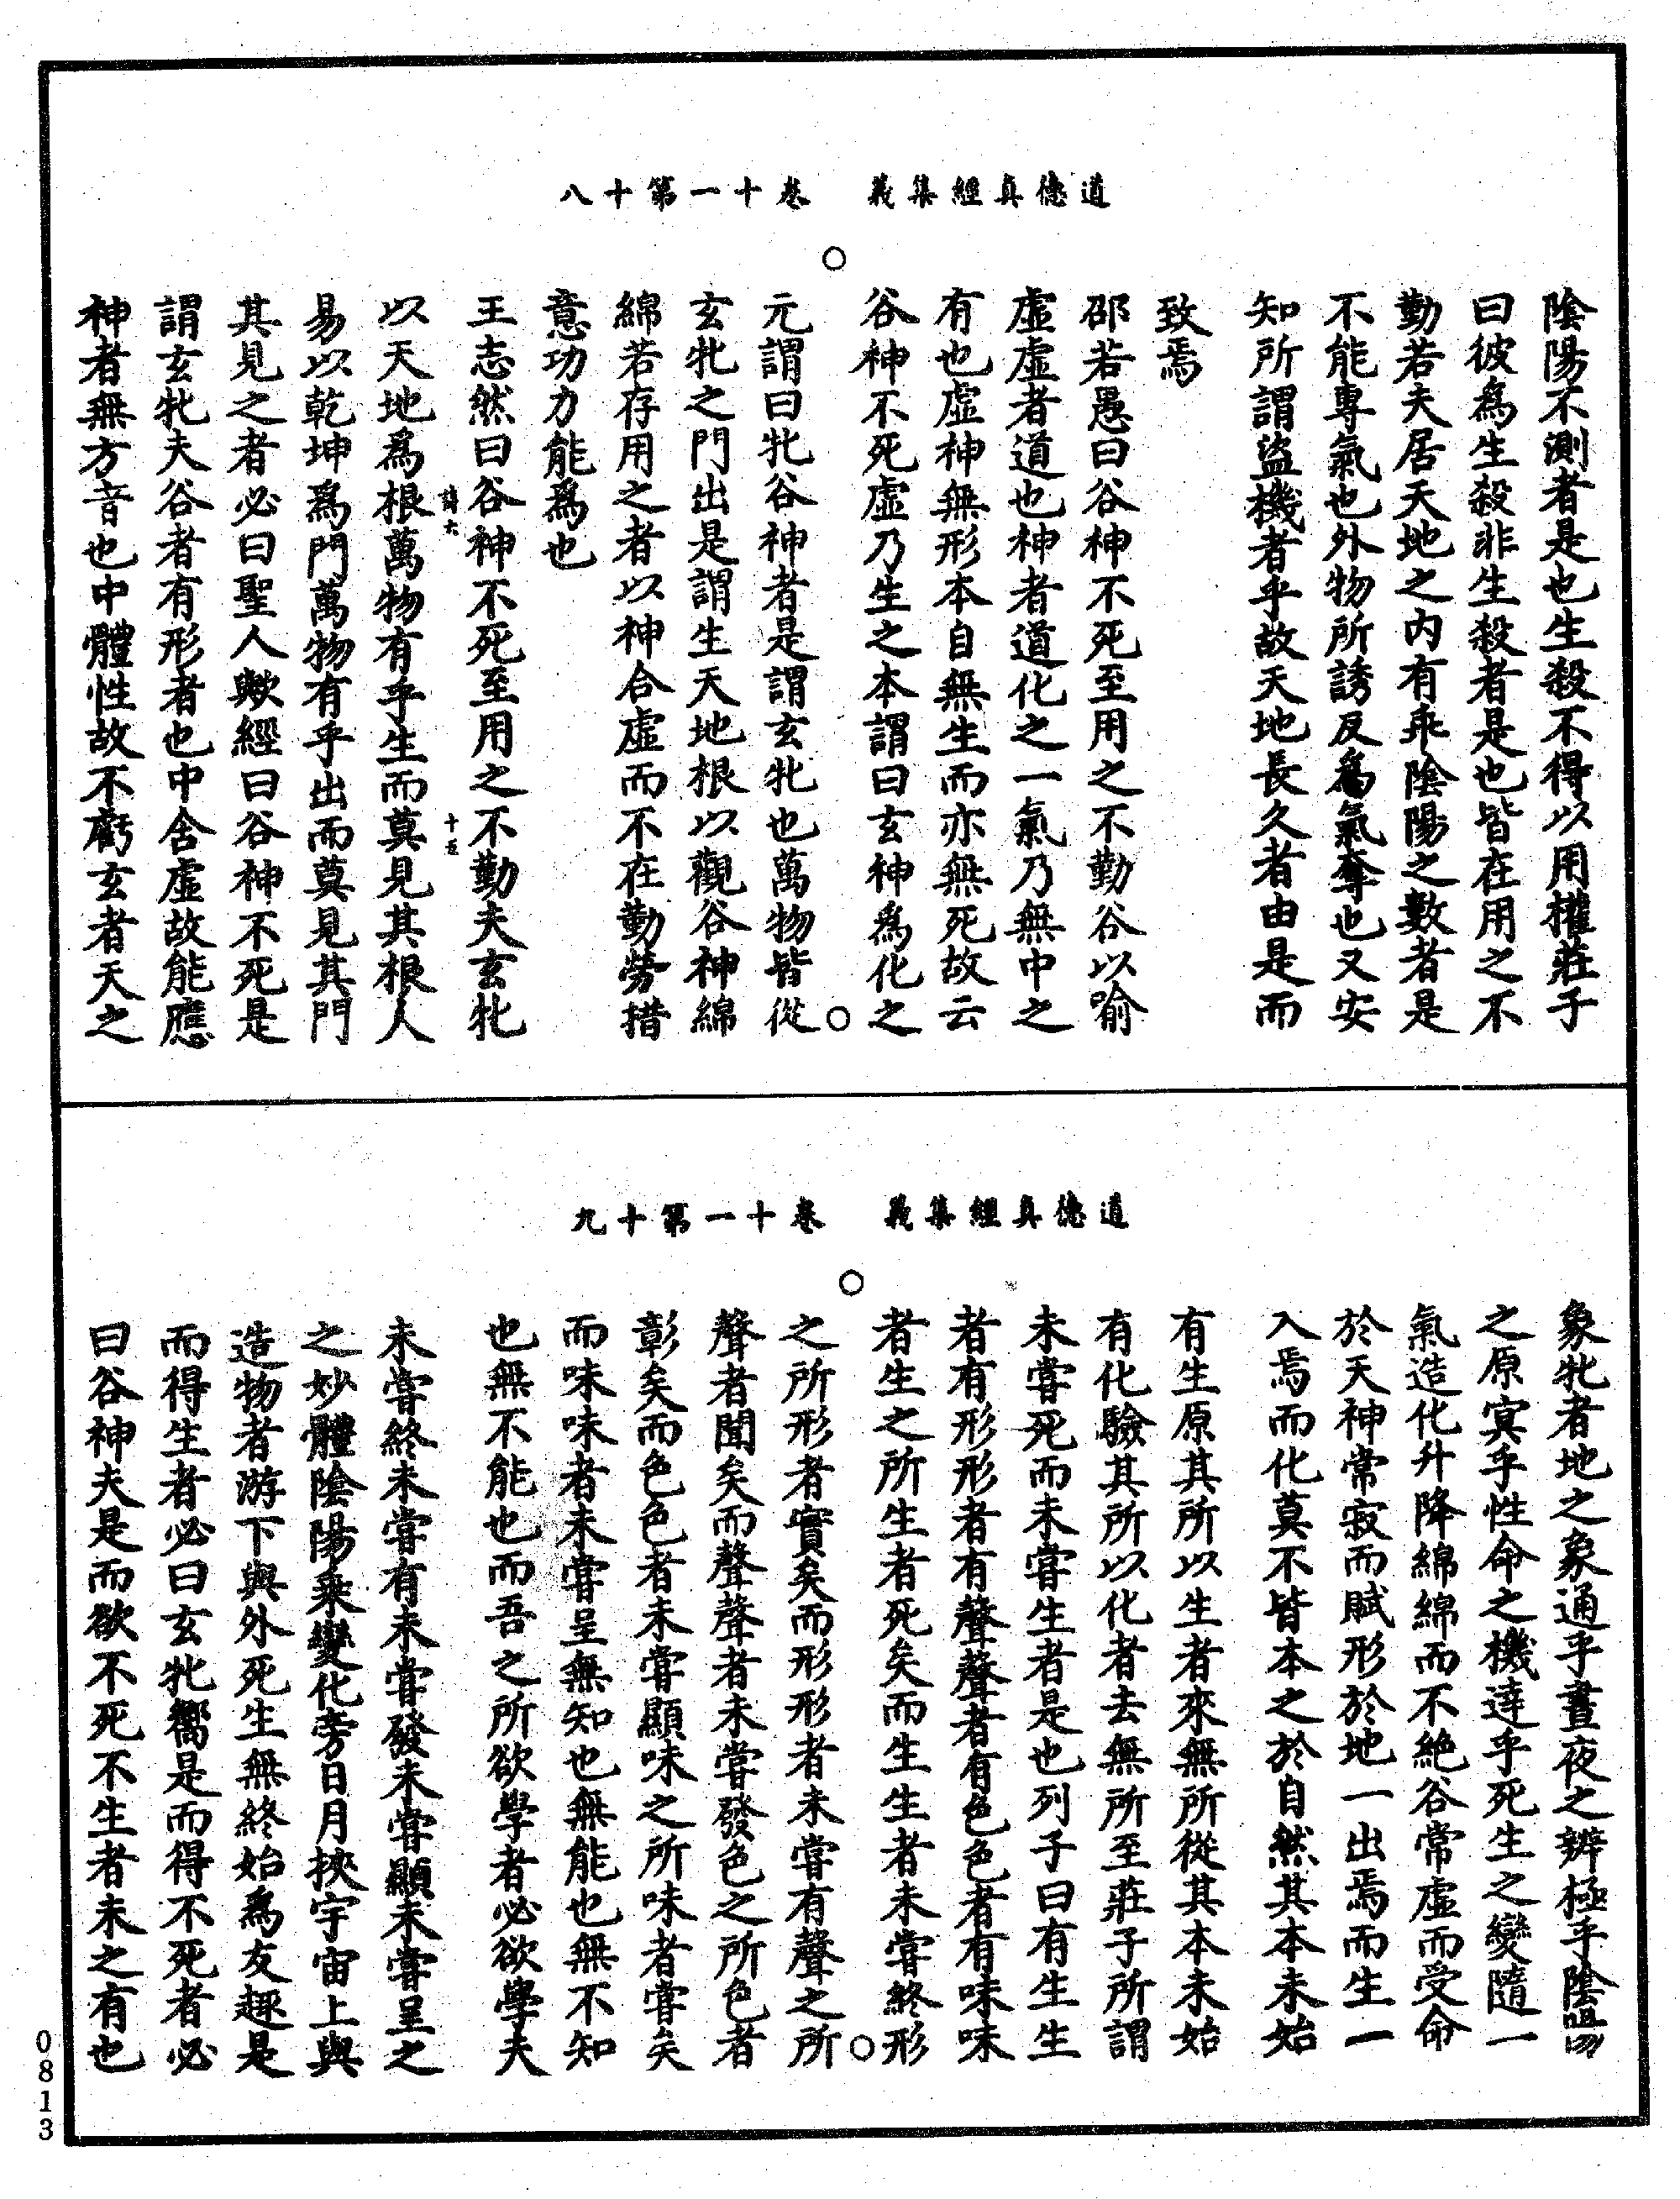 道德真經集義　卷十一第十八
陰陽不測者是也生殺不得以用權莊子
曰彼為生殺非生殺者是也皆在用之不
勤若夫居天地之內有乘陰陽之數者是
不能專氣也外物所誘反為氣奪也又安
知所謂盜機者乎故天地長久者由是而
致焉
邵若愚曰谷神不死至用之不勤谷以喻
虛虛者道也神者道化之一氣乃無中之
有也虛神無形本自無生而亦無死故云
谷神不死虛乃生之本謂曰玄神為化之
元謂曰牝谷神者是謂玄牝也萬物皆從
玄牝之門出是謂生天地根以觀谷神綿
綿若存用之者以神合虛而不在勤勞措
意功力能為也
王志然曰谷神不死至用之不勤夫玄牝
詩六　十五
以天地為根萬物有乎生而莫見其根人
易以乾坤為門萬物有乎出而莫見其門
其見之者必曰聖人歟經曰谷神不死是
謂玄牝夫谷者有形者也中含虛故能應
神者無方音也中體性故不虧玄者天之
道德真經集義　卷十一第十九
象牝者地之象通乎晝夜之辨極乎陰陽
之原冥乎性命之機達乎死生之變隨一
氣造化升降綿綿而不絕谷常虛而受命
於天神常寂而賦形於地一出焉而生一
入焉而化莫不皆本之於自然其本未始
有生原其所以生者來無所從其本未始
有化驗其所以化者去無所至莊子所謂
未嘗死而未嘗生者是也列子曰有生生
者有形形者有聲聲者有色色者有味味
者生之所生者死矣而生生者未嘗終形
之所形者實矣而形形者未嘗有聲之所
聲者聞矣而聲聲者未嘗發色之所色者
彰矣而色色者未嘗顯味之所味者嘗矣
而味味者未嘗呈無知也無能也無不知
也無不能也而吾之所欲學者必欲學夫
未嘗終未嘗有未嘗發未嘗顯未嘗呈之
之妙體陰陽乘變化旁日月挾宇宙上與
造物者游下與外死生無終始為友趣是
而得生者必曰玄牝嚮是而得不死者必
曰谷神夫是而欲不死不生者未之有也
0813